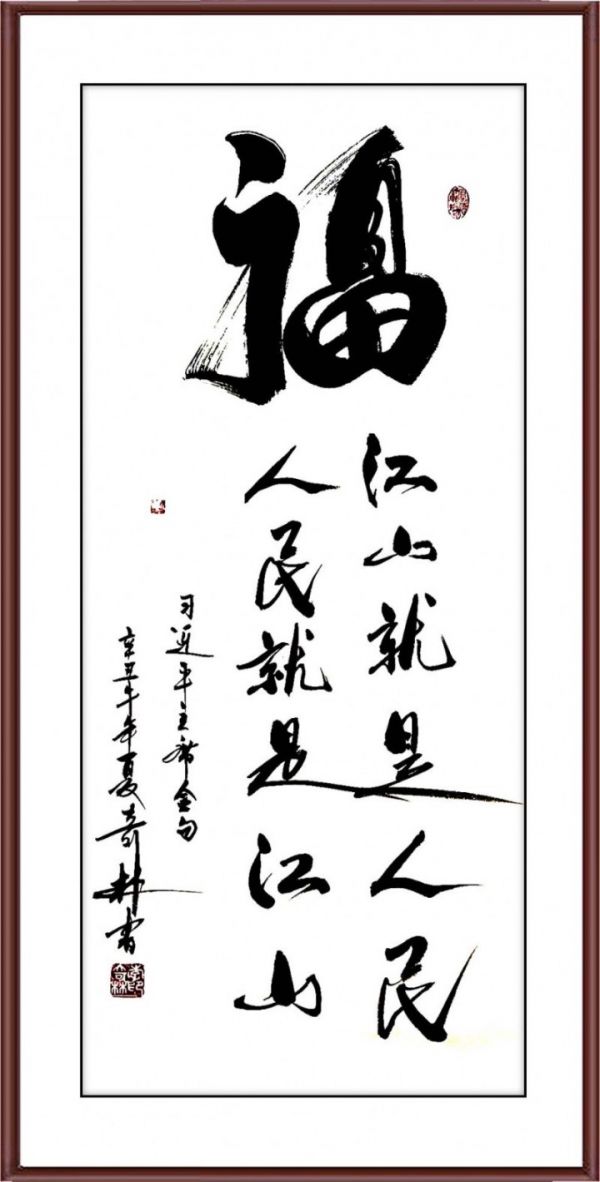 福
江山就是人民
人民就是江山
习近平主席金句
辛丑牛年夏奇林书
李奇林印